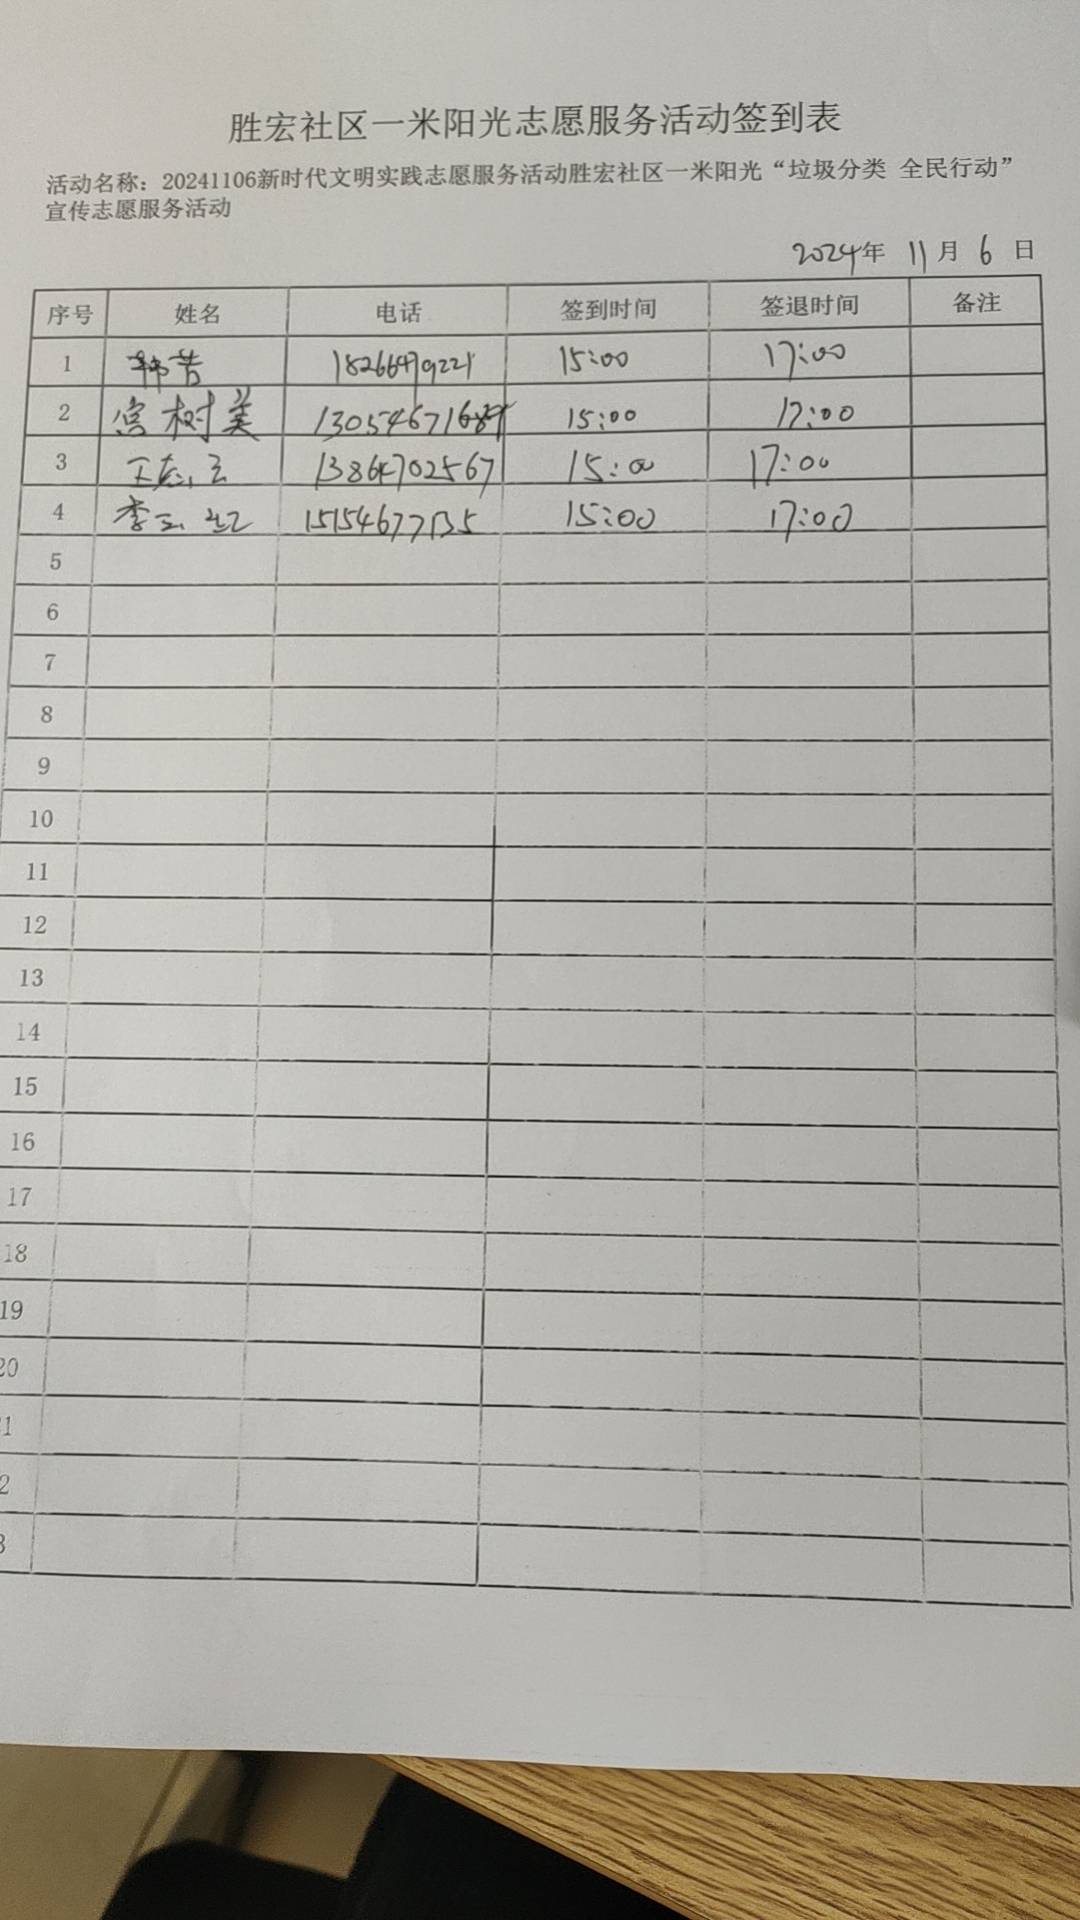 胜宏社区一米阳光志愿服务活动签到表
活动名称：20241106新时代文明实践志愿服务活动胜宏社区一米阳光“垃圾分类 全民行动”
宣传志愿服务活动
2024年 11月 6 日
序号 姓名 电话 签到时间 签退时间 备注
1 韩芳 18266479221 15:00 17:00
2 宫树美 15:00 17:00
3 13864702567 15:00 17:00
4 15154677135 15:00 17:00
5
6
7
8
9
10
11
12
13
14
15
16
17
18
19
20
1
2
3